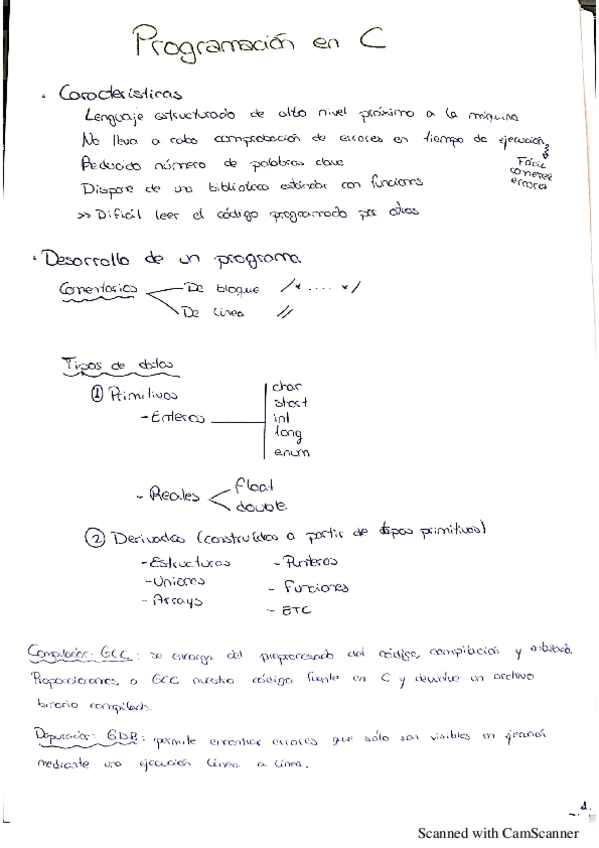 Programación en C
· Características
Lenguaje estructurado de alto nivel próximo a la máquina
No lleva a cabo comprobación de errores en tiempo de ejecución
Fácil
cometer
errores
Reducido número de palabras clave
Dispone de una biblioteca estándar con funciones
>> Difícil leer el código programado por otros
· Desarrollo de un programa
Comentarios
De bloque /* .... */
De línea //
Tipos de datos
① Primitivos
- Enteros
char
short
int
long
enum
- Reales
float
double
② Derivados (construídos a partir de tipos primitivos)
- Estructuras - Punteros
- Uniones - Funciones
- Arrays - ETC
Compilador: GCC: se encarga del del código, compilación y
Proporcionamos a GCC nuestro código fuente en C y devuelve un archivo
binario compilado.
Depurador: GDB: permite encontrar errores que sólo son visibles en
mediante una ejecución línea a línea.
1.
Scanned with CamScanner